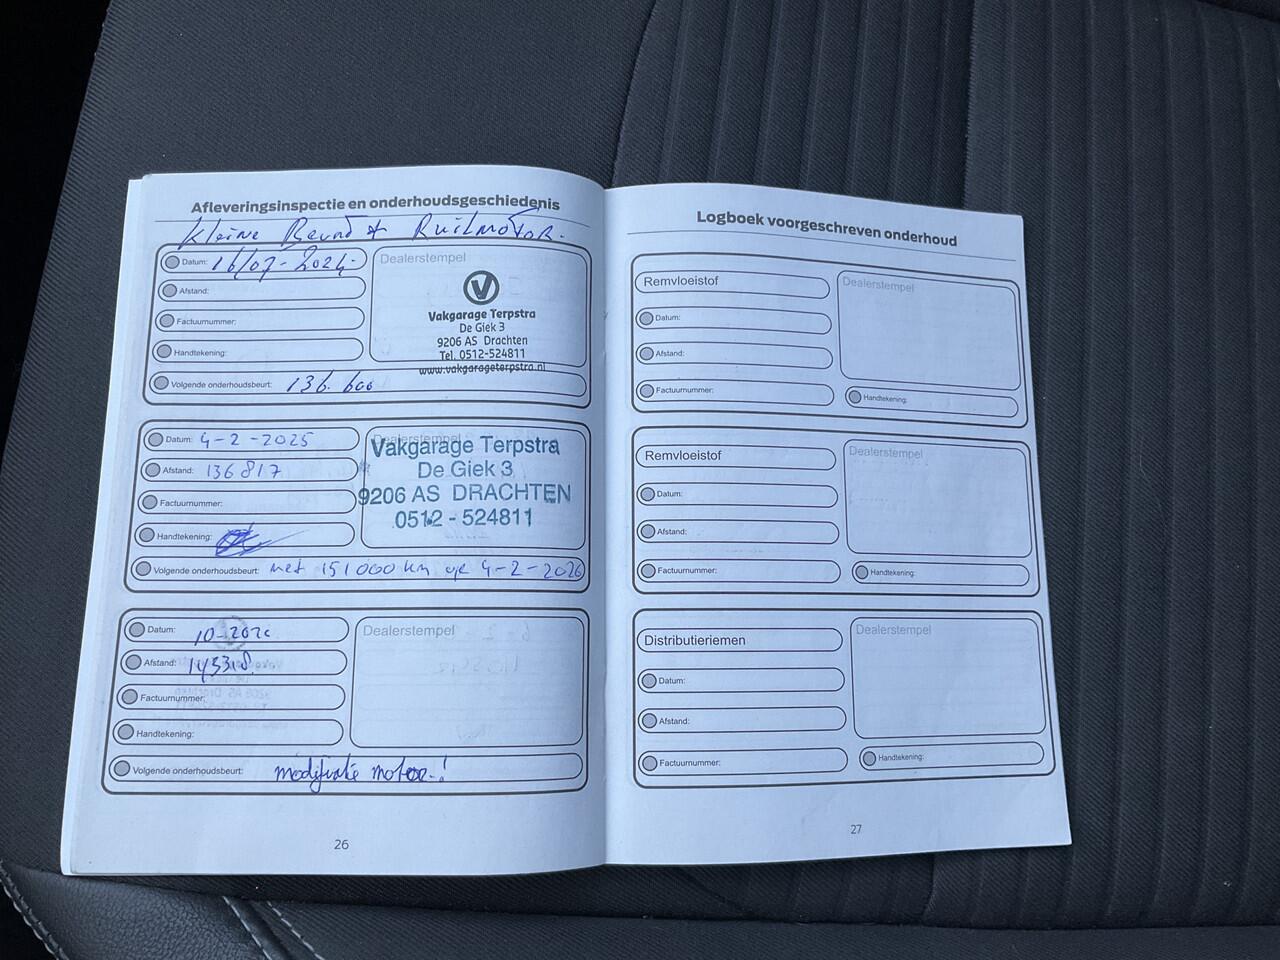 Afleveringsinspectie en onderhoudsgeschiedenis
Kleine Beurt + Ruilmotor.
Datum: 16/07-2024.
Dealerstempel
Afstand:
Factuurnummer:
Handtekening:
Vakgarage Terpstra
De Giek 3
9206 AS Drachten
Tel. 0512-524811
www.vakgarageterpstra.nl
Volgende onderhoudsbeurt: 136.600
Datum: 4-2-2025
Dealerstempel
Afstand: 136817
Factuurnummer:
Handtekening:
Vakgarage Terpstra
De Giek 3
9206 AS DRACHTEN
0512 - 524811
Volgende onderhoudsbeurt: met 151000 km op 4-2-2026
Datum:
Dealerstempel
Afstand:
Factuurnummer:
Handtekening:
Volgende onderhoudsbeurt: modifikatie motor.!
26
Logboek voorgeschreven onderhoud
Remvloeistof
Dealerstempel
Datum:
Afstand:
Factuurnummer:
Handtekening:
Remvloeistof
Dealerstempel
Datum:
Afstand:
Factuurnummer:
Handtekening:
Distributieriemen
Dealerstempel
Datum:
Afstand:
Factuurnummer:
Handtekening:
27